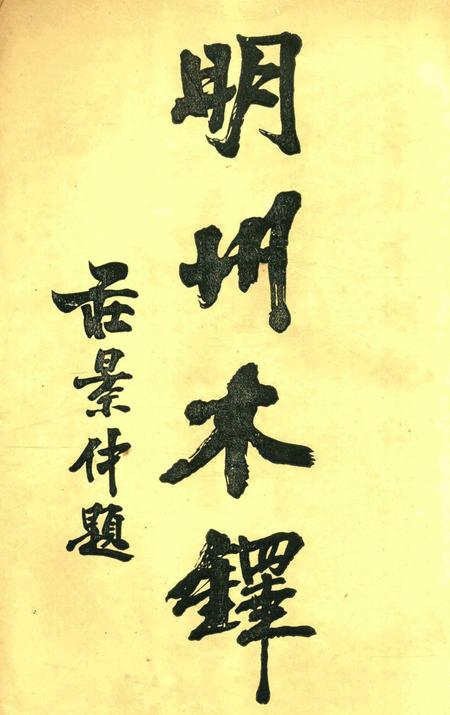 明州木鐸
莊景仲題